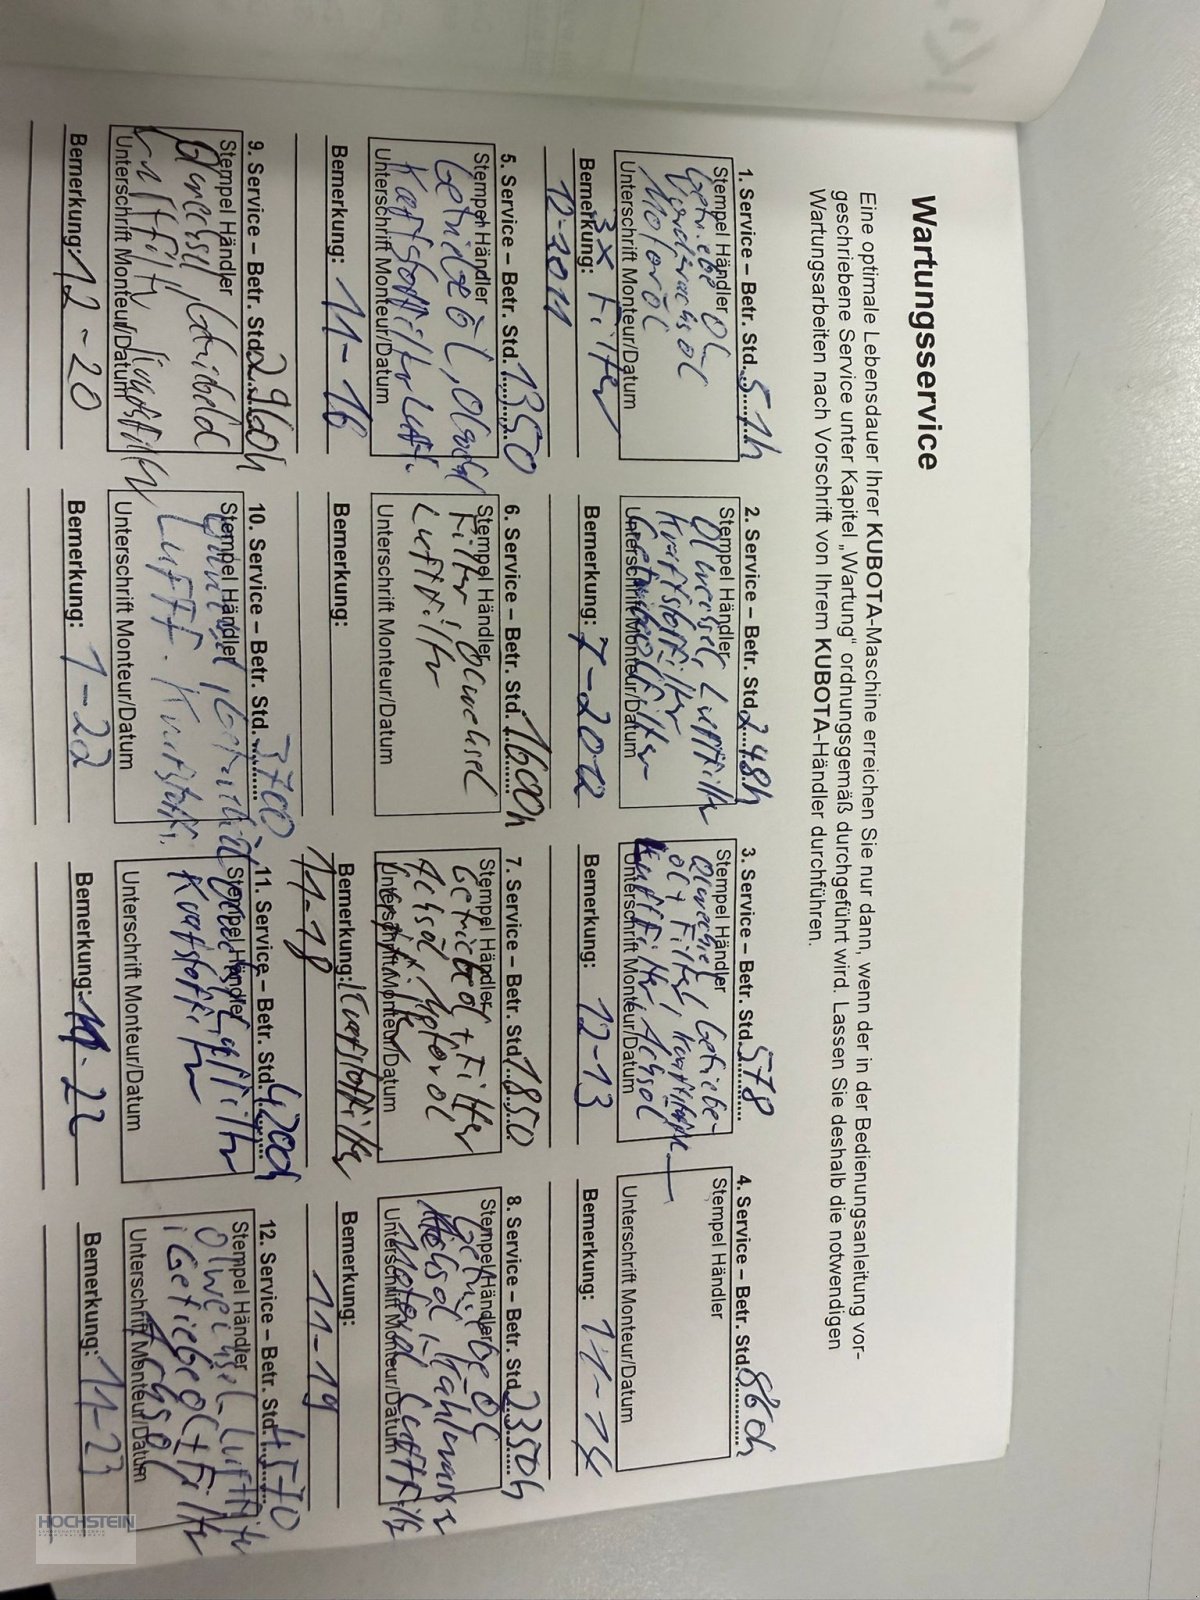 Wartungsservice
Eine optimale Lebensdauer Ihrer KUBOTA-Maschine erreichen Sie nur dann, wenn der in der Bedienungsanleitung vor-
geschriebene Service unter Kapitel „Wartung" ordnungsgemäß durchgeführt wird. Lassen Sie deshalb die notwendigen
Wartungsarbeiten nach Vorschrift von Ihrem KUBOTA-Händler durchführen.
1. Service – Betr. Std. 51h
Stempel Händler
Getriebe Öl
Vorderachsöl
Motoröl
Unterschrift Monteur/Datum
3x Filter
Bemerkung:
12-2011
2. Service – Betr. Std. 248h
Stempel Händler
Ölwechsel, Luftfilter
Kraftstoffilter
Unterschrift Monteur/Datum
Bemerkung: 7-2012
3. Service – Betr. Std. 578
Stempel Händler
Ölwechsel, Getriebe-
öl + Filter,
Luftfilter, Achsöl
Unterschrift Monteur/Datum
Bemerkung: 12-13
4. Service – Betr. Std. 860h
Stempel Händler
Unterschrift Monteur/Datum
Bemerkung: 11-14
5. Service – Betr. Std. 1350
Stempel Händler
Getriebeöl,
Unterschrift Monteur/Datum
Bemerkung: 11-16
6. Service – Betr. Std. 1600h
Stempel Händler
Filter Ölwechsel
Luftfilter
Unterschrift Monteur/Datum
Bemerkung:
7. Service – Betr. Std. 1850
Stempel Händler
Getriebeöl + Filter
Achsöl, Motoröl
Unterschrift Monteur/Datum
Bemerkung: Kraftstoffilter
11-18
8. Service – Betr. Std. 2350h
Stempel Händler
Getriebe-Öl
Achsöl, Kühlwasser
Motoröl Luftfilter
Unterschrift Monteur/Datum
Bemerkung:
11-19
9. Service – Betr. Std. 2960h
Stempel Händler
Ölwechsel
Luftfilter
Unterschrift Monteur/Datum
Bemerkung: 12-20
10. Service – Betr. Std. 3700
Stempel Händler
Ölwechsel,
Luftf. Kraftstoff.
Unterschrift Monteur/Datum
Bemerkung: 1-22
11. Service – Betr. Std. 4200h
Stempel Händler
Luftfilter
Kraftstoffilter
Unterschrift Monteur/Datum
Bemerkung: 22
12. Service – Betr. Std. 4570
Stempel Händler
Ölwechsel Luftfilter
Getriebeöl + Filter
Achsöl
Unterschrift Monteur/Datum
Bemerkung: 11-23
HOCHSTEIN